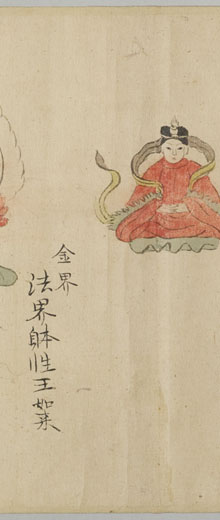 金界
法界躰性王如来